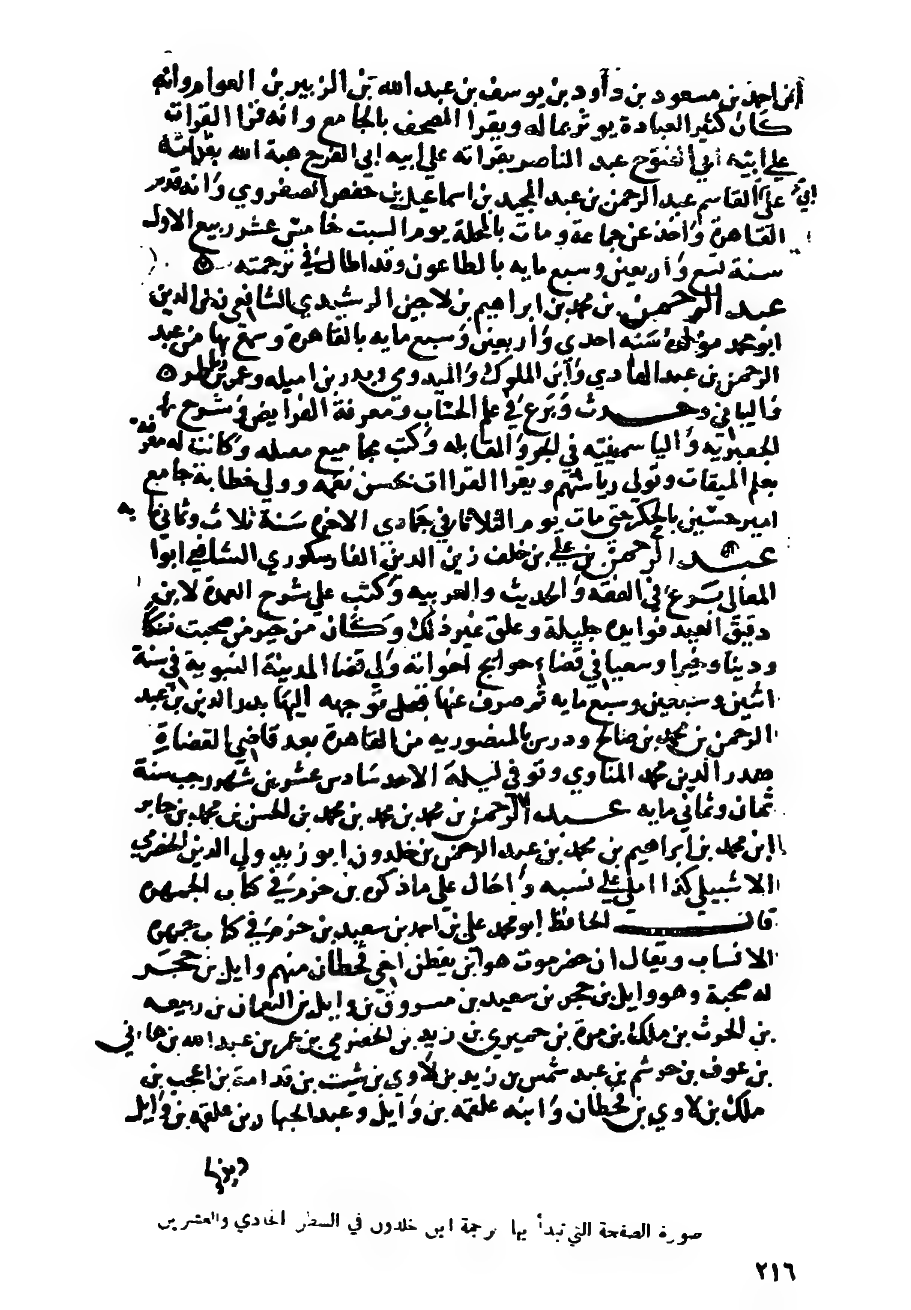 ابن احمد بن مسعود بن داود بن يوسف بن عبد الله بن الزبير بن العوام وانه
كان كثير العبادة يوثر بماله ويقرا المصحف بالجامع وانه قرا القران
علي ابيه ابي الفتوح عبد الناصر بقراته علي ابيه ابي الفرج هبة الله بقراته
علي ابي القاسم عبد الرحمن بن عبد المجيد بن اسماعيل بن حفص الصفروي وانه قدم
القاهرة واخذ عن جماعة ومات بالمحلة يوم السبت خامس عشر ربيع الاول
سنة تسع واربعين وسبع مايه بالطاعون وقد اطال في ترجمته
عبد الرحمن بن محمد بن ابراهيم بن لاجين الرشيدي الشافعي زين الدين
ابو محمد مولده سنه احدي واربعين وسبع مايه بالقاهرة وسمع بها من عبد
الرحمن بن عبد الهادي وابن الملوك والميدومي وبدر بن اميله وعمر بن
وحدث وبرع في علم الحساب ومعرفة الفرايض وشرح
الجعبريه والياسمينيه في الجبر والمقابله وكتب مجاميع وكانت له معرفة
بعلم الميقات وتولي رياستهم ويقرا القراات بحسن نغمه وولي خطابة جامع
امير حسين بالحكر حتي مات يوم الثلاثا في جمادي الاخره سنة ثلاث وثماني مايه
عبد الرحمن بن علي بن خلف زين الدين الفارسكوري الشافعي ابوا
المعالي برع في الفقه والحديث والعربيه وكتب علي شرح العمدة لابن
دقيق العيد فوايد جليلة وعلق غير ذلك وكان من خير من صحبت نسكا
ودينا وخيرا وسعيا في قضاء حوايج اخوانه ولي قضا المدينة النبوية في سنة
اثنين وتسعين وسبع مايه ثم صرف عنها قبل توجهه اليها بدر الدين بن عبد
الرحمن بن محمد بن صالح ودرس بالمنصوريه من القاهرة بعد قاضي القضاة
صدر الدين محمد المناوي وتوفي ليلة الاحد سادس عشرين شهر رجب سنة
ثمان وثماني مايه عبد الرحمن بن محمد بن محمد بن محمد بن الحسن بن محمد بن جابر
ابن محمد بن ابراهيم بن محمد بن عبد الرحمن بن خلدون ابو زيد ولي الدين الحضرمي
الاشبيلي كذا املي علي نسبه واحال علي ما ذكره بن حزم في كتاب الجمهره
قال الحافظ ابو محمد علي بن احمد بن سعيد بن حزم في كتاب جمهرة
الانساب ويقال ان حضرموت هو ابن يقطن اخي قحطان منهم وايل بن حجر
له صحبة وهو وايل بن حجر بن سعيد بن مسروق بن وايل بن النعمان بن ربيعه
بن الحرث بن ملك بن مرة بن حميري بن زيد بن الحضرمي بن عمر بن عبد الله بن هاني
بن عوف بن جرشم بن عبد شمس بن زيد بن لاوي بن شبت بن قدامة بن اعجب بن
ملك بن لاوي بن قحطان وابنه علقمه بن وايل وعبد الجبار بن علقمه بن وايل
صورة الصفحة التي تبدأ بها ترجمة ابن خلدون في السطر الحادي والعشرين
٢١٦